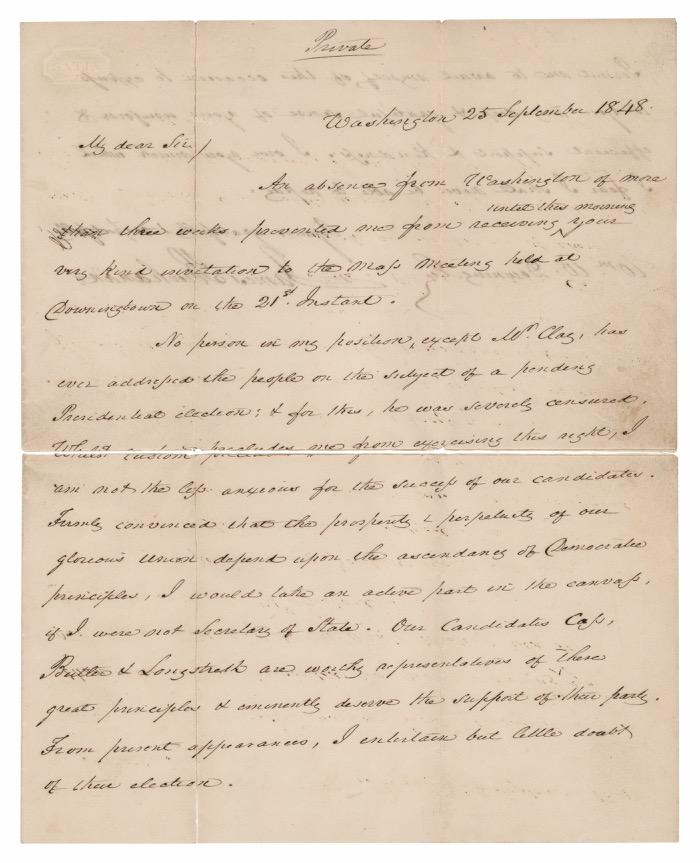 Private
Washington 25 September 1848.
My dear Sir/
An absence from Washington of more
until this morning
than three weeks prevented me from receiving your
very kind invitation to the Mass Meeting held at
Downingtown on the 21st. Instant.
No person in my position, except Mr. Clay, has
ever addressed the people on the subject of a pending
Presidential election; & for this, he was severely censured.
Whilst custom precludes me from exercising this right, I
am not the less anxious for the success of our candidates.
Firmly convinced that the prosperity & perpetuity of our
glorious Union depend upon the ascendancy of Democratic
principles, I would take an active part in the canvass,
if I were not Secretary of State. Our Candidates Cass,
Butler & Longstreth are worthy representatives of these
great principles & eminently deserve the support of their party.
From present appearances, I entertain but little doubt
of their election.